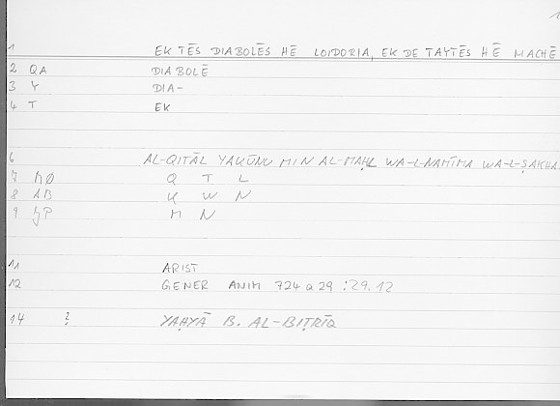 1 EK TĒS DIABOLĒS HĒ LOIDORIA, EK DE TAYTĒS HĒ MACHĒ
2 QA DIABOLĒ
3 Y DIA-
4 T EK
6 AL-QITĀL YAKŪNU MIN AL-MAḤL WA-L-NAMĪMA WA-L-
7 Q T L
8 AB K W N
9 M N
11 ARIST
12 GENER ANIM 724 a 29 :29.12
14 ? YAḤYĀ B. AL-BIṬRĪQ